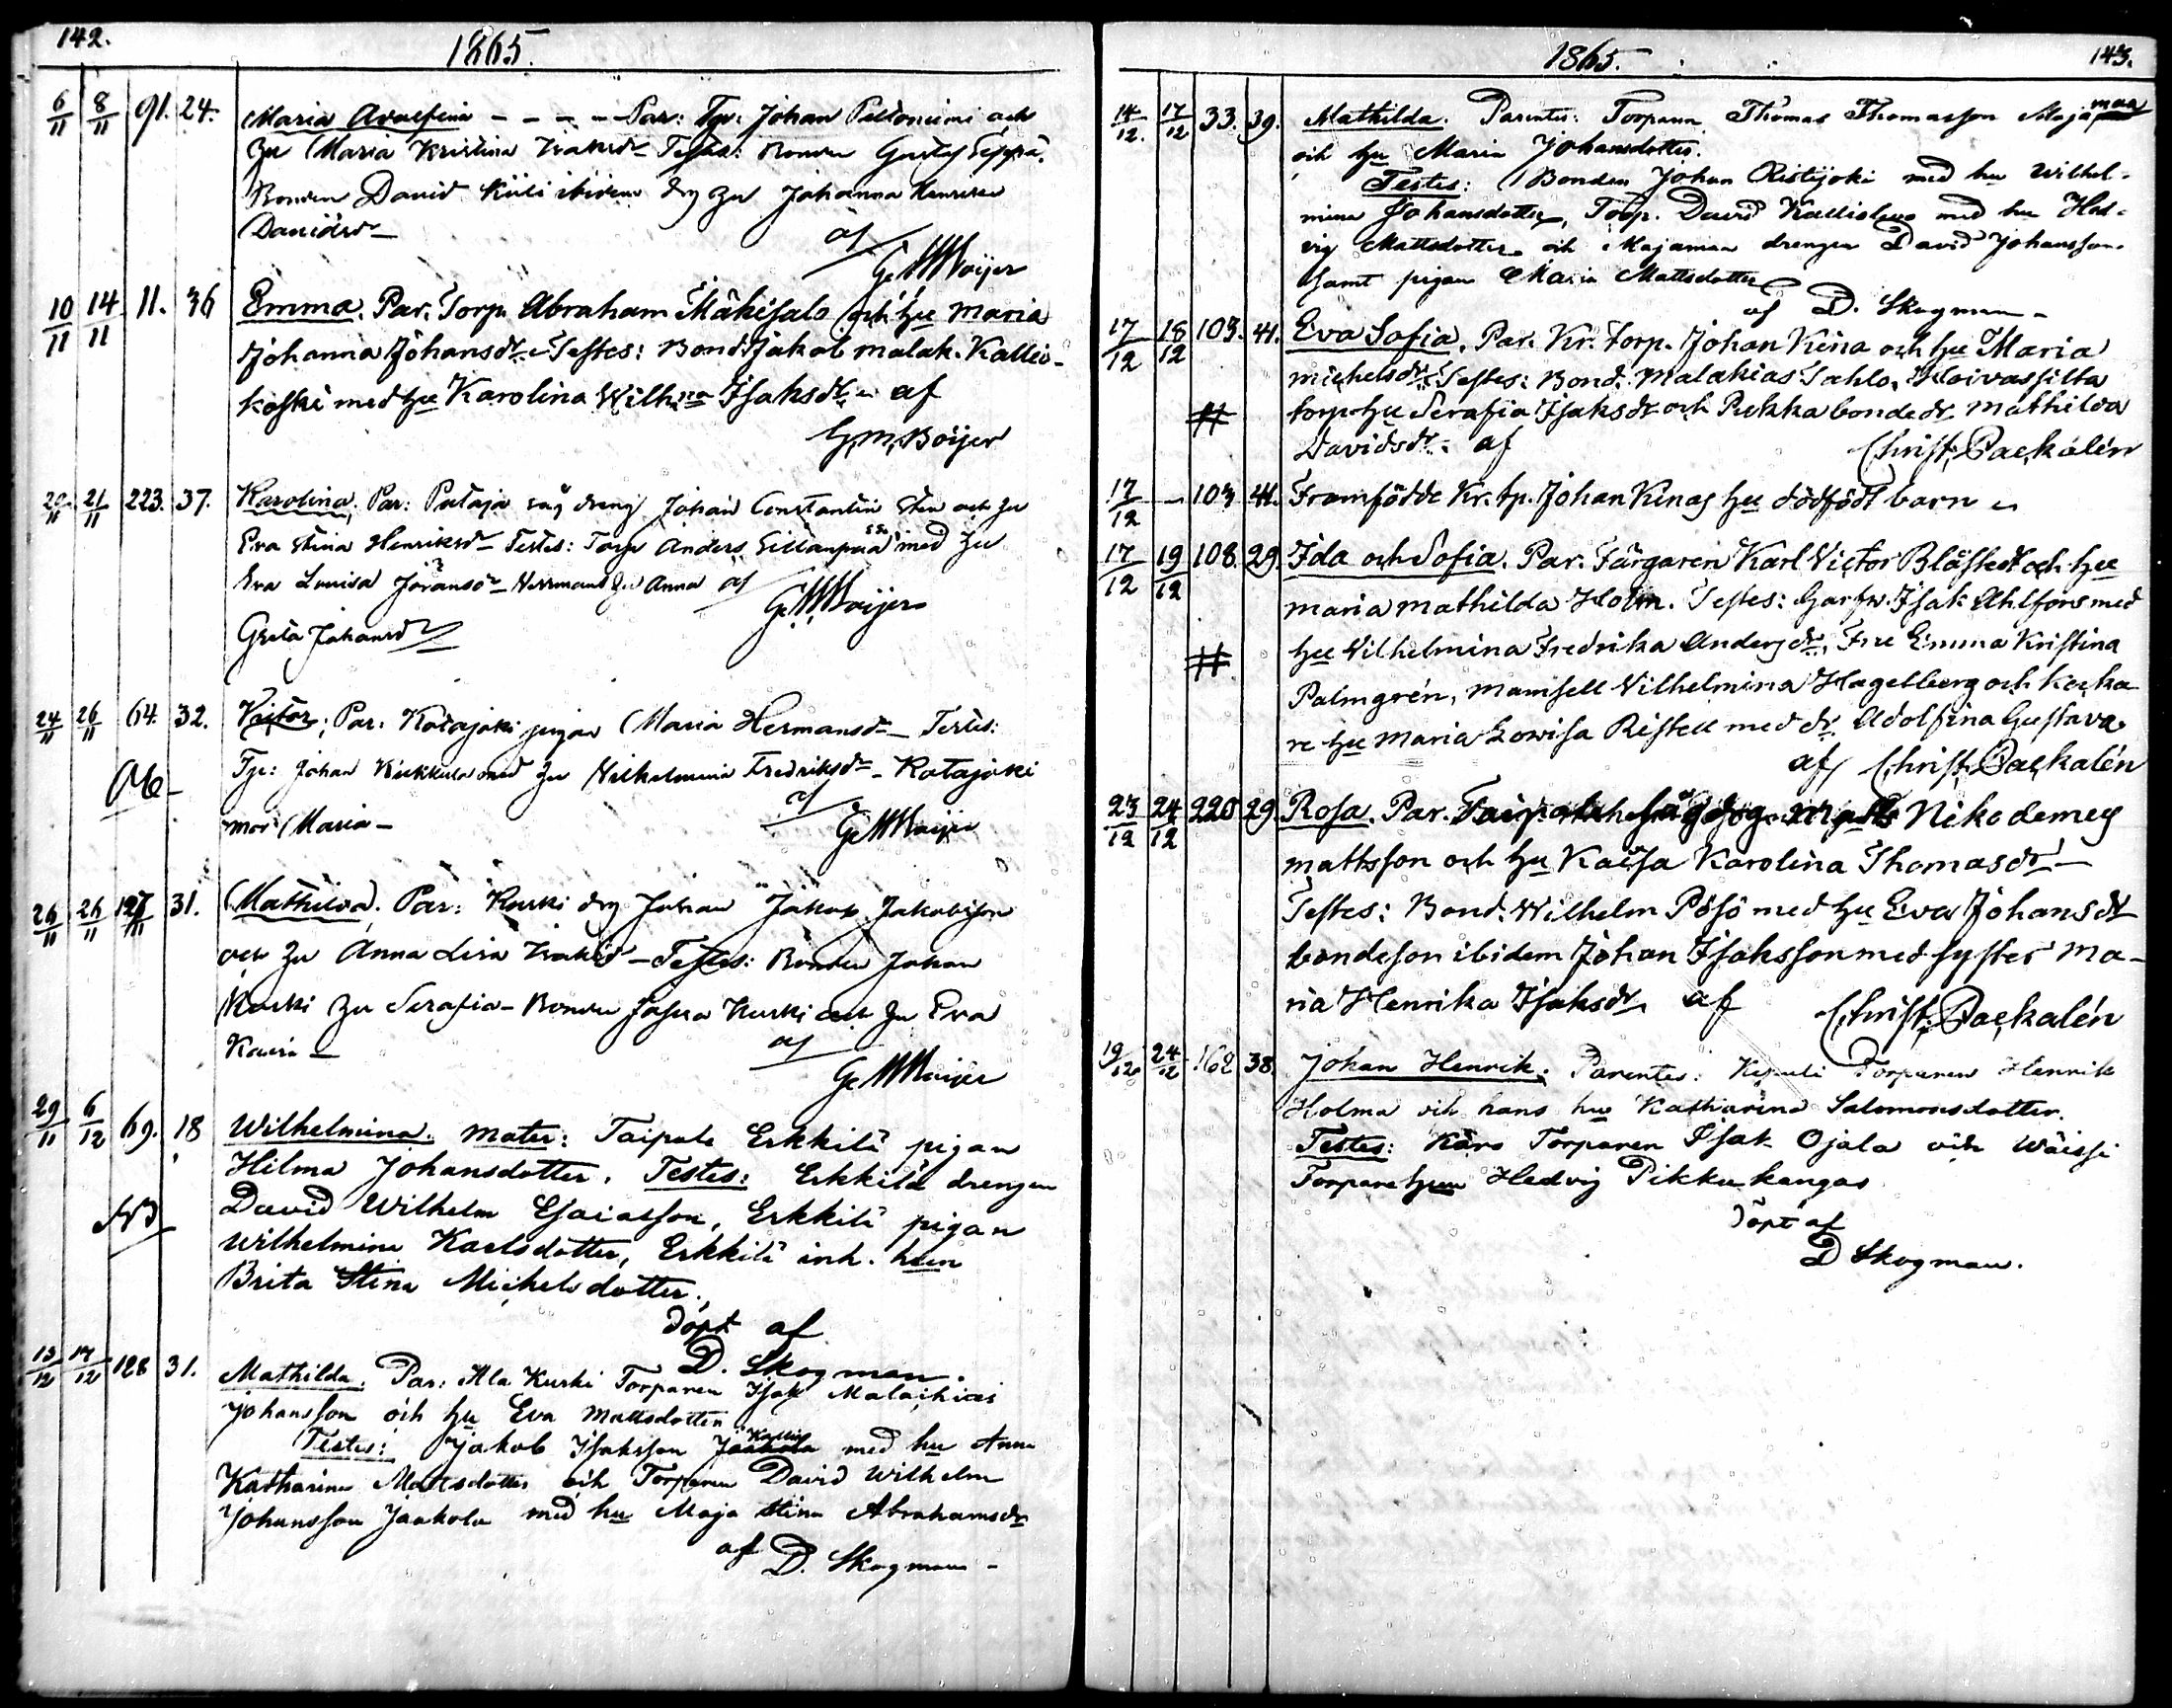 142.
1865.
6/11 8/11 91. 24. Maria Adolfina - - - - Par: Tp: Johan Peltoniemi och
hu Maria Kristina Isaksdr - Testes: Bonden Gustaf Seppä.
Bonden David Kiili ibidem dg hu Johanna Henrica
Davidsdr -
af
G M Boijer
10/11 14/11 11. 36 Emma. Par. Torp. Abraham Mäkisalo och hu Maria
Johanna Johansdr. Testes: Bond. Jakob Malak. Kallio-
koski med hu Karolina Wilhna Isaksdr. af
G. M. Boijer
20/11 21/11 223. 37. Karolina, Par: Pataja dreng Johan Constantin Sten och hu
Eva Stina Henriksdr - Testes: Torp Anders Sillanpää med hu
Eva Lovisa Johansdr - hu Anna af
G M Boijer
Greta Johansdr
24/11 26/11 64. 32. Victor; Par: Katajoki pigan Maria Hermansdr - Testes:
Tp: Johan med hu Wilhelmina Fredriksdr - Katajoki
mor Maria -
af
G M Boijer
26/11 26/11 127 31. Mathilda. Par: Kurki dg Johan Jakob Jakobsson
och hu Anna Lisa Isaksdr - Testes: Bonden Johan
Kurki hu Serafia - Bonden Josua Kurki och hu Eva
Kaisa -
af
G M Boijer
29/11 6/12 69. 18 Wilhelmina. Mater: Taipale Erkkilä pigan
Hilma Johansdotter. Testes: Erkkilä drengen
David Wilhelm Esaiasson, Erkkilä pigan
Wilhelmina Karlsdotter, Erkkilä inh. hun
Brita Stina Michelsdotter.
Döpt af
D. Skogman.
13/12 17/12 128 31. Mathilda. Par: Ala Kurki Torparen Isak Malachias
Johansson och hu Eva Mattsdotter
Testes: Jakob Isaksson Kallio med hu Anna
Katharina Mattsdotter och Torparen David Wilhelm
Johansson Jaakola med hu Maja Stina Abrahamsdr
af D. Skogman -
1865.
143.
14/12. 17/12 33. 39. Mathilda. Parentes: Torparen Thomas Thomasson Majamaa
och hu Maria Johansdotter.
Testes: Bonden Johan Ristijoki med hu Wilhel-
mina Johansdotter, Torp. David med hu Hed-
vig Mattsdotter och Majamaa drengen David Johansson
samt pigan Maria Mattsdotter
af D. Skogman -
17/12 18/12 103. 41. Eva Sofia. Par. Kr. torp. Johan Kina och hu Maria
Michelsdr. Testes: Bond. Malakias Sahlo, Koivassilta
torp. hu Serafia Isaksdr och Pukka bondedr. Mathilda
Davidsdr. af
Christ. Packalén
17/12 - 103 41. Framfödde Kr. tp. Johan Kinas hu dödfödt barn
17/12 19/12 108. 29. Ida och Sofia. Par. Färgaren Karl Victor Blåfiedt och hu
Maria Mathilda Holm. Testes: Garfw. Isak Ahlfors med
hu Wilhelmina Fredrika Andersdr, Fru Emma Kristina
Palmgrén, Mamsell Vilhelmina Hagelberg och
re hu Maria Lowisa Ristell med dr. Adolfina Gustava
af Christ. Packalén
23/12 24/12 220 29. Rosa. Par. Nikodemes
Mattsson och hu Kaisa Karolina Thomasdr -
Testes: Bond. Wilhelm Pösö med hu Eva Johansdr
bondeson ibidem Johan Isaksson med syster Ma-
ria Henrika Isaksdr. af
Christ. Packalén
19/12. 24/12 162 38. Johan Henrik. Parentes: Torparen Henrik
Holma och hans hu Katharina Salomonsdotter.
Testes: Torparen Isak Ojala och Wäissi
Torpare hun Hedvig Pikkukangas
Döpt af
D Skogman.